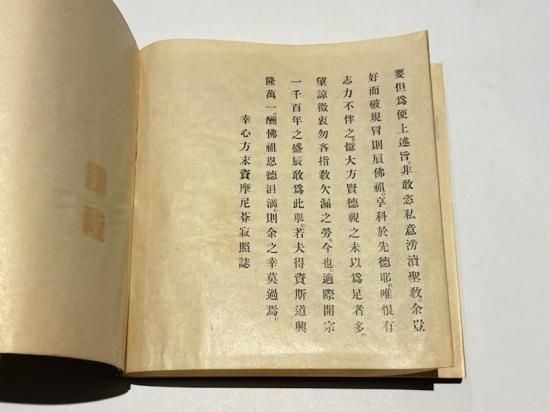 要但爲便上述旨。非敢恣私意滂瀆聖敎。余豈
好而破規冒則辰佛祖。享科於先德耶。唯恨有
志力不伴之。億大方賢德視之未以爲足者多。
望諒微衷勿吝指敎欠漏之勞。今也。適際開宗
一千百年之盛辰敢爲此擧。若夫得資斯道興
隆萬一酬佛祖恩德涓滴。則余之幸莫過焉。
幸心方末資摩尼芬寂照誌